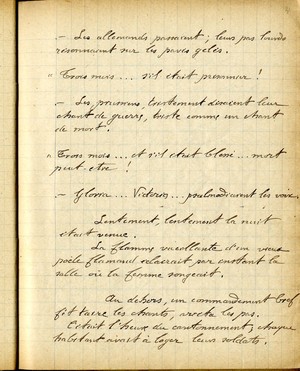 — Les allemands passaient ; leurs pas lourds
résonnaient sur les pavés gelés.
« Trois mois... s'il était prisonnier !
— Les prussiens, tristement disaient leur
chant de guerre, triste comme un chant
de mort.
« Trois mois... et s'il était blessé... mort
peut-être !
— Gloria... Victoria... les voix.
Lentement, lentement la nuit
était venue.
La flamme vacillante d'un vieux
poële flamand éclairait par instant la
salle où la femme songeait.
Au dehors, un commandement bref
fit taire les chants, arrêta les pas.
C'était l'heure du cantonnement ; chaque
habitant avait à loger leurs soldats.